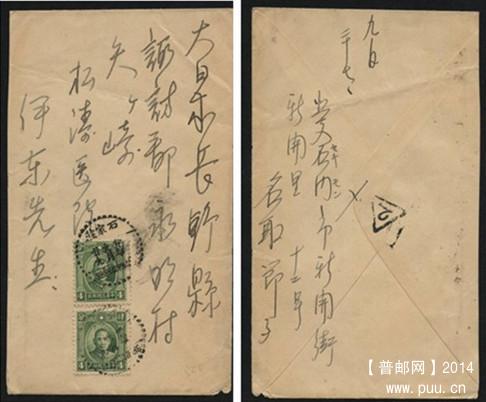 大日本長野縣
諏訪郡永明村
矢ヶ崎
松濤医院
伊東先生
石家莊
4
4
4
4
九日
新開街
新開里十二号
名取節子
【普邮网】2014
www.puu.cn